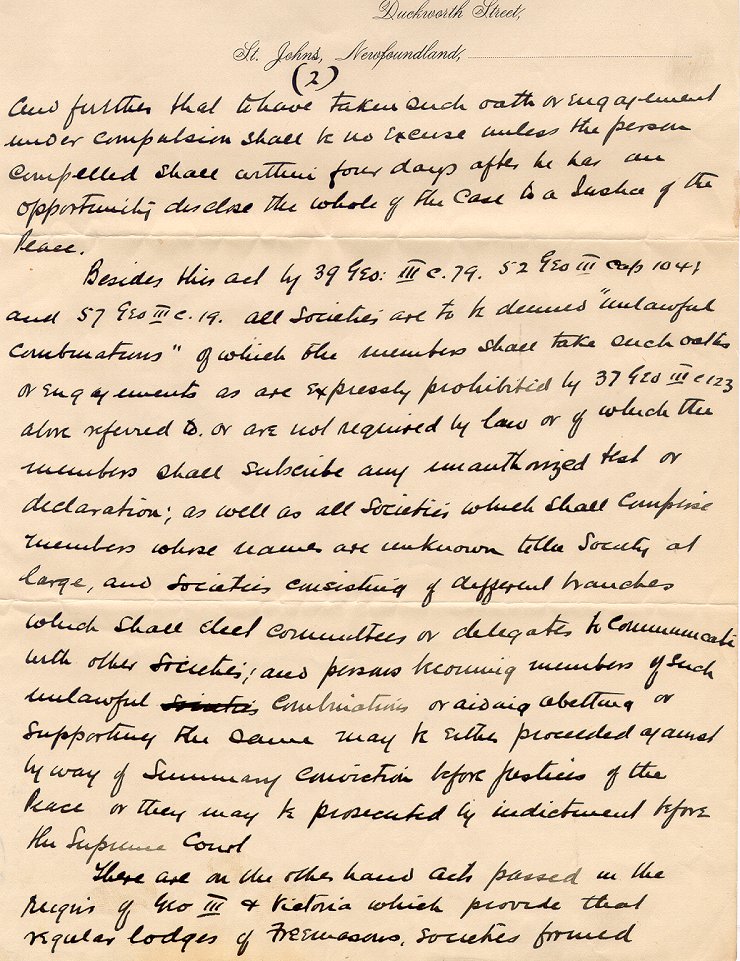 Duckworth Street,
St. John's, Newfoundland,
(2)
and further that to have taken such oath or engagement
under compulsion shall be no excuse unless the person
compelled shall within four days after he has an
opportunity disclose the whole of the case to a Justice of the
Peace.
Besides this act by 39 Geo: III c. 79. 52 Geo III cap 104;
and 57 Geo III c. 19. all Societies are to be deemed "unlawful
combinations" of which the members shall take such oaths
or engagements as are expressly prohibited by 37 Geo III c 123
above referred to. or are not required by law or of which the
members shall subscribe any unauthorized test or
declaration; as well as all Societies which shall comprise
members whose names are unknown to the Society at
large, and Societies consisting of different branches
which shall elect committees or delegates to communicate
with other Societies; and persons becoming members of such
unlawful Societies combinations or aiding abetting or
supporting the same may be either proceeded against
by way of Summary Conviction before Justices of the
Peace or they may be prosecuted by indictment before
the Supreme Court
There are on the other hand acts passed in the
reigns of Geo III & Victoria which provide that
regular lodges of Freemasons, Societies formed